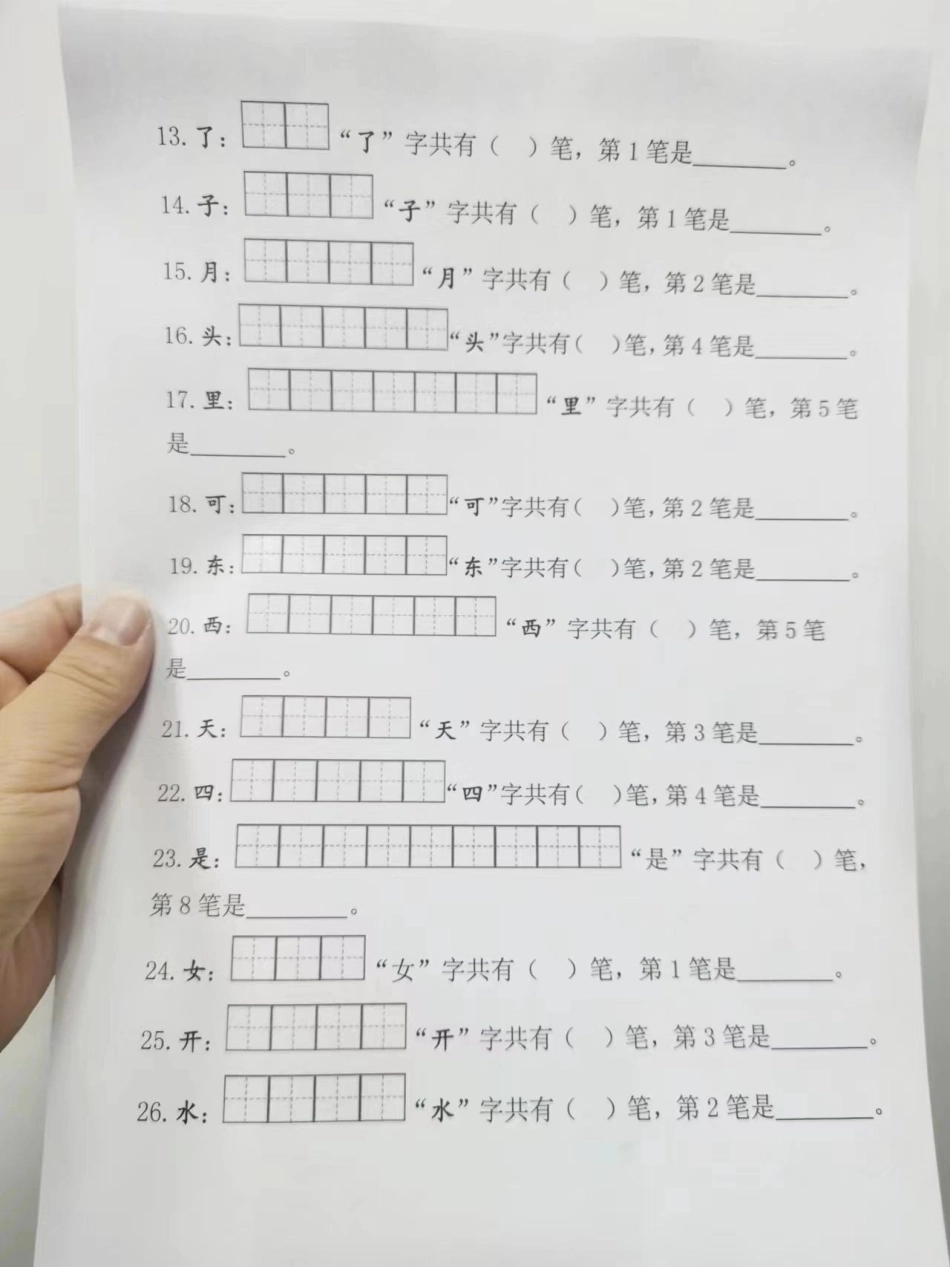 13. 了： “了” 字共有（ ）笔，第 1 笔是________。
14. 子： “子” 字共有（ ）笔，第 1 笔是________。
15. 月： “月” 字共有（ ）笔，第 2 笔是________。
16. 头： “头”字共有( )笔，第 4 笔是________。
17. 里： “里” 字共有（ ）笔，第 5 笔
是________。
18. 可： “可”字共有( )笔，第 2 笔是________。
19. 东： “东”字共有( )笔，第 2 笔是________。
20. 西： “西” 字共有（ ）笔，第 5 笔
是________。
21. 天： “天” 字共有（ ）笔，第 3 笔是________。
22. 四： “四”字共有( )笔，第 4 笔是________。
23. 是： “是” 字共有（ ）笔，
第 8 笔是________。
24. 女： “女” 字共有（ ）笔，第 1 笔是________。
25. 开： “开” 字共有（ ）笔，第 3 笔是________。
26. 水： “水” 字共有（ ）笔，第 2 笔是________。